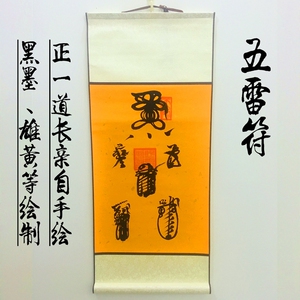 五雷符
正一道长亲自手绘
黑墨、雄黃等绘制